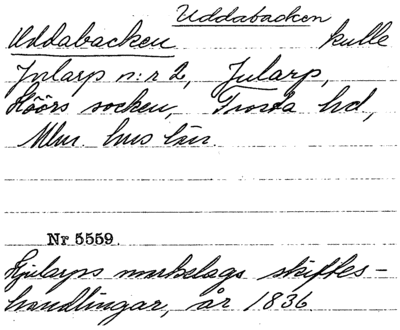 Uddabacken
Uddabacken kulle
Jularp n:r 2, Jularp,
Höörs socken, Frosta hd,
Mlm. hus län.
Nr 5559.
Hjularps markelags skiftes-
handlingar, år 1836